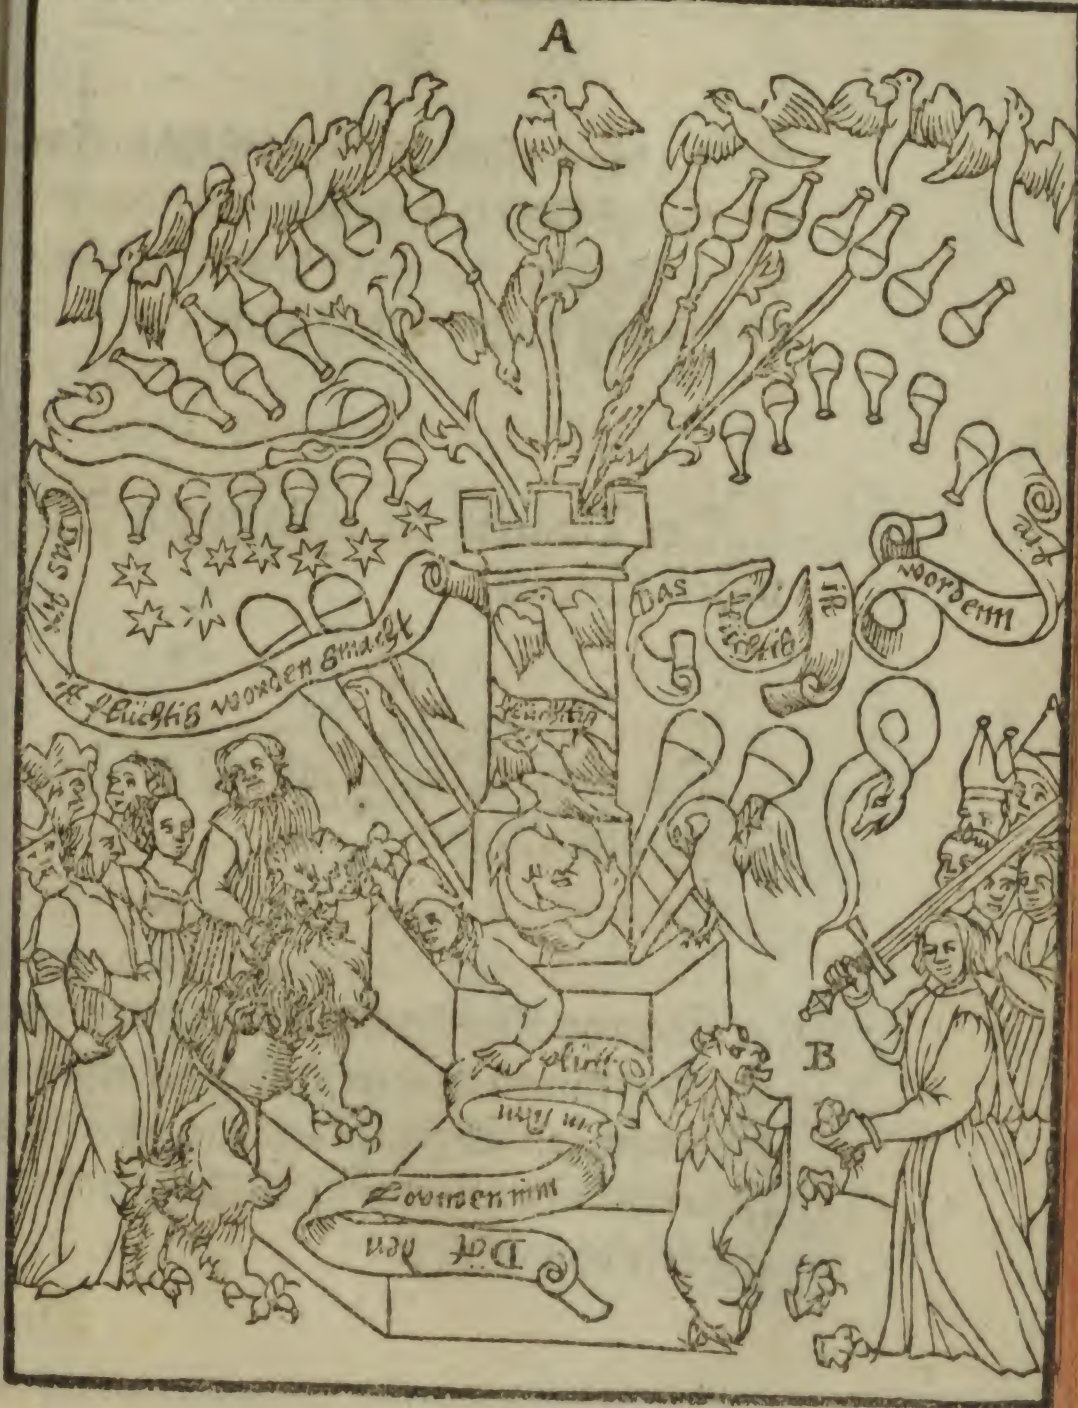 A
Das ist
ist flüchtig worden gmacht
DAS
flüchtig
ist
wordenn
auß
flüchtig
B
plütt
vm sein
Lowwen nim
Dört den